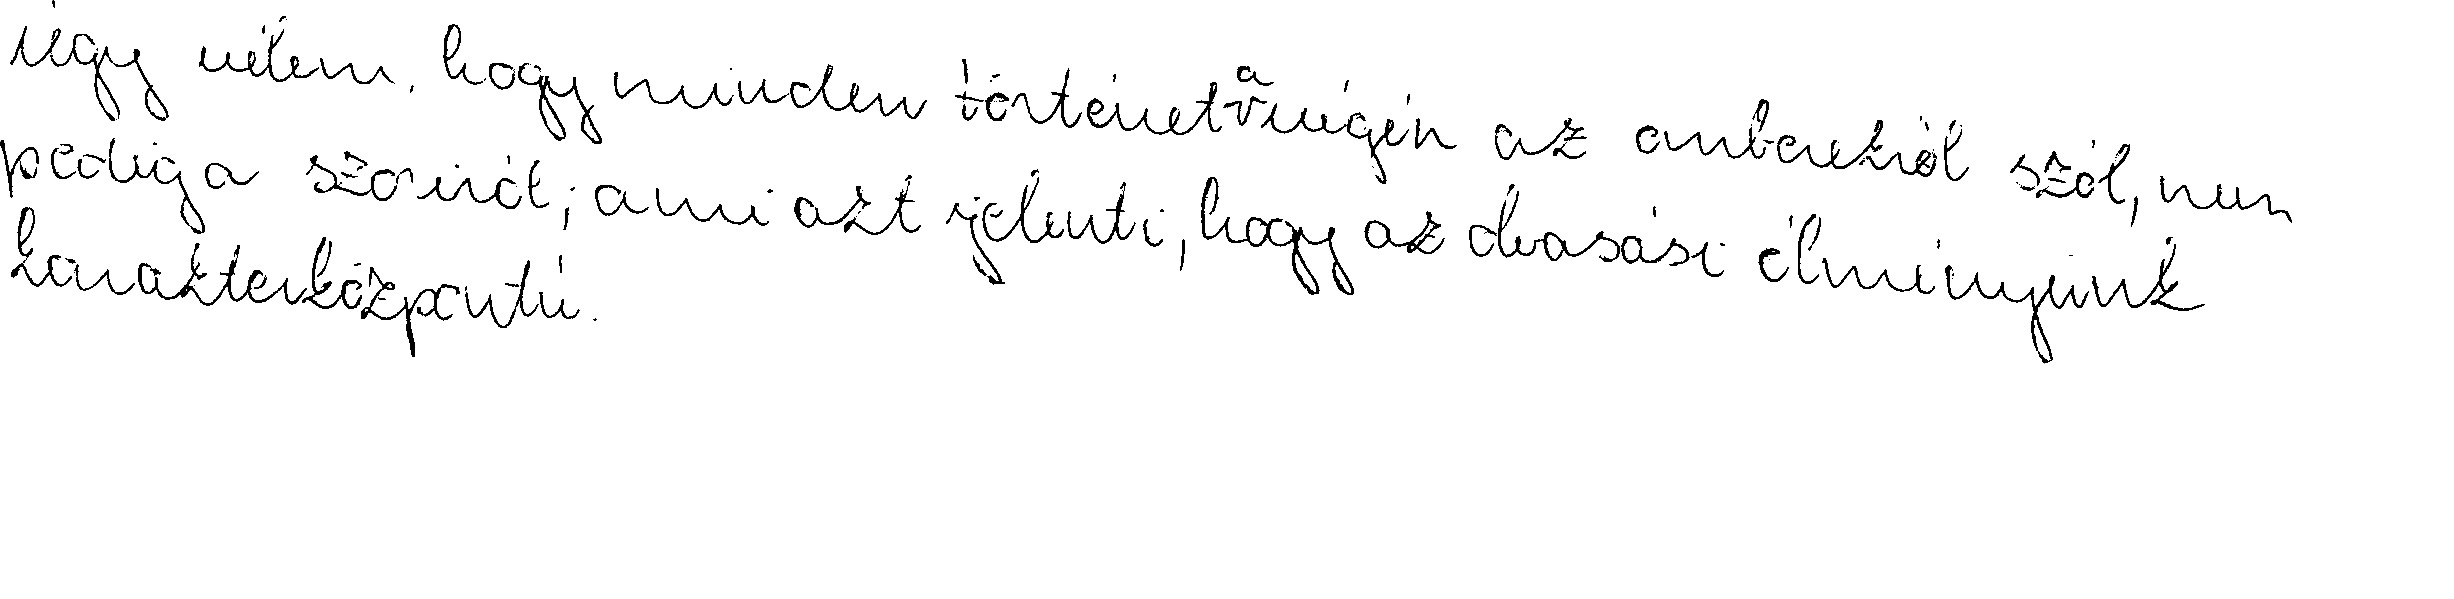 úgy vélem, hogy minden történet a végén az emberekről szól, nem
pedig a sztoriról; ami azt jelenti, hogy az olvasási élményünk
karakterközpontú.